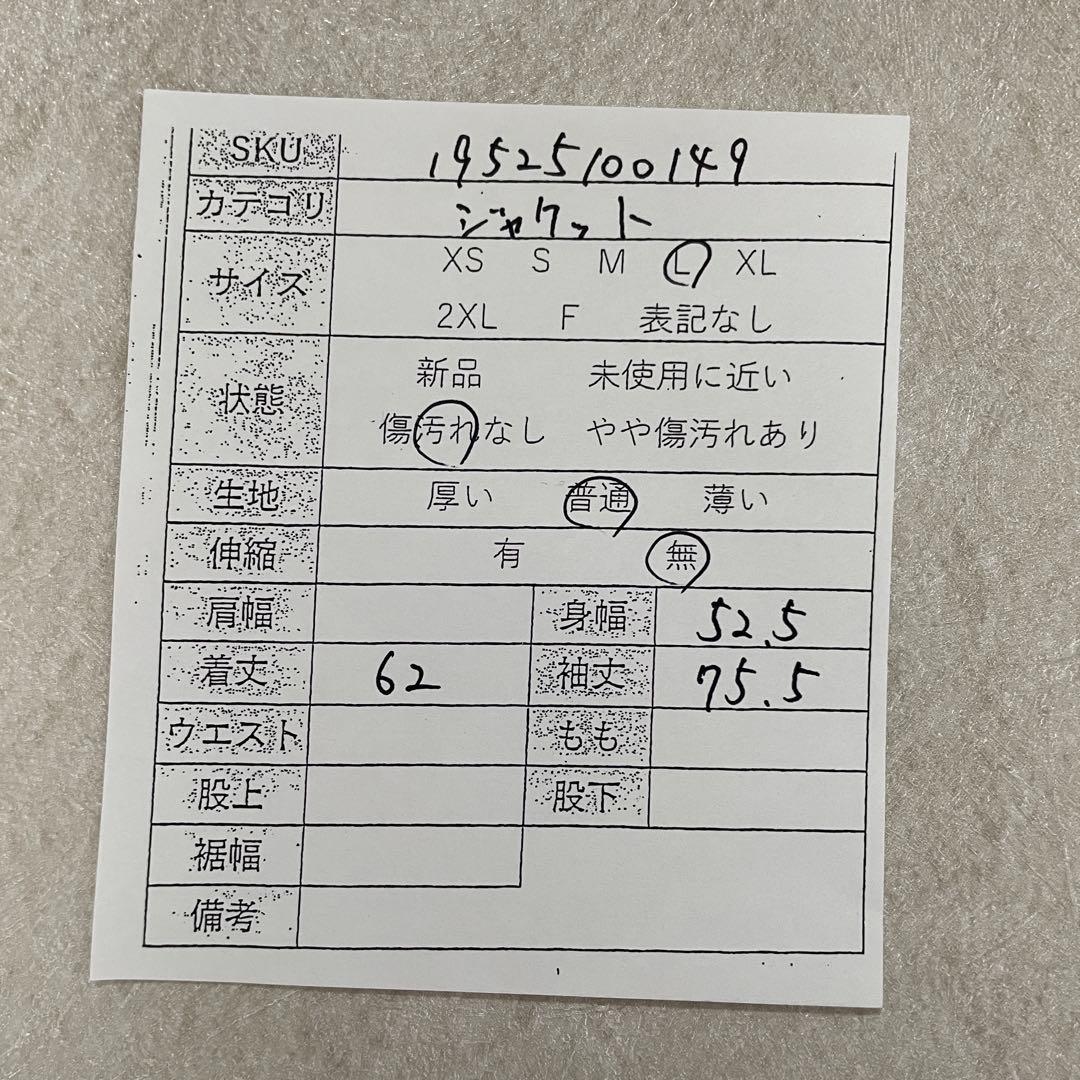 SKU 19525100149
カテゴリ ジャケット
サイズ XS S M L XL
2XL F 表記なし
状態 新品 未使用に近い
傷汚れなし やや傷汚れあり
生地 厚い 普通 薄い
伸縮 有 無
肩幅 身幅 52.5
着丈 62 袖丈 75.5
ウエスト もも
股上 股下
裾幅
備考